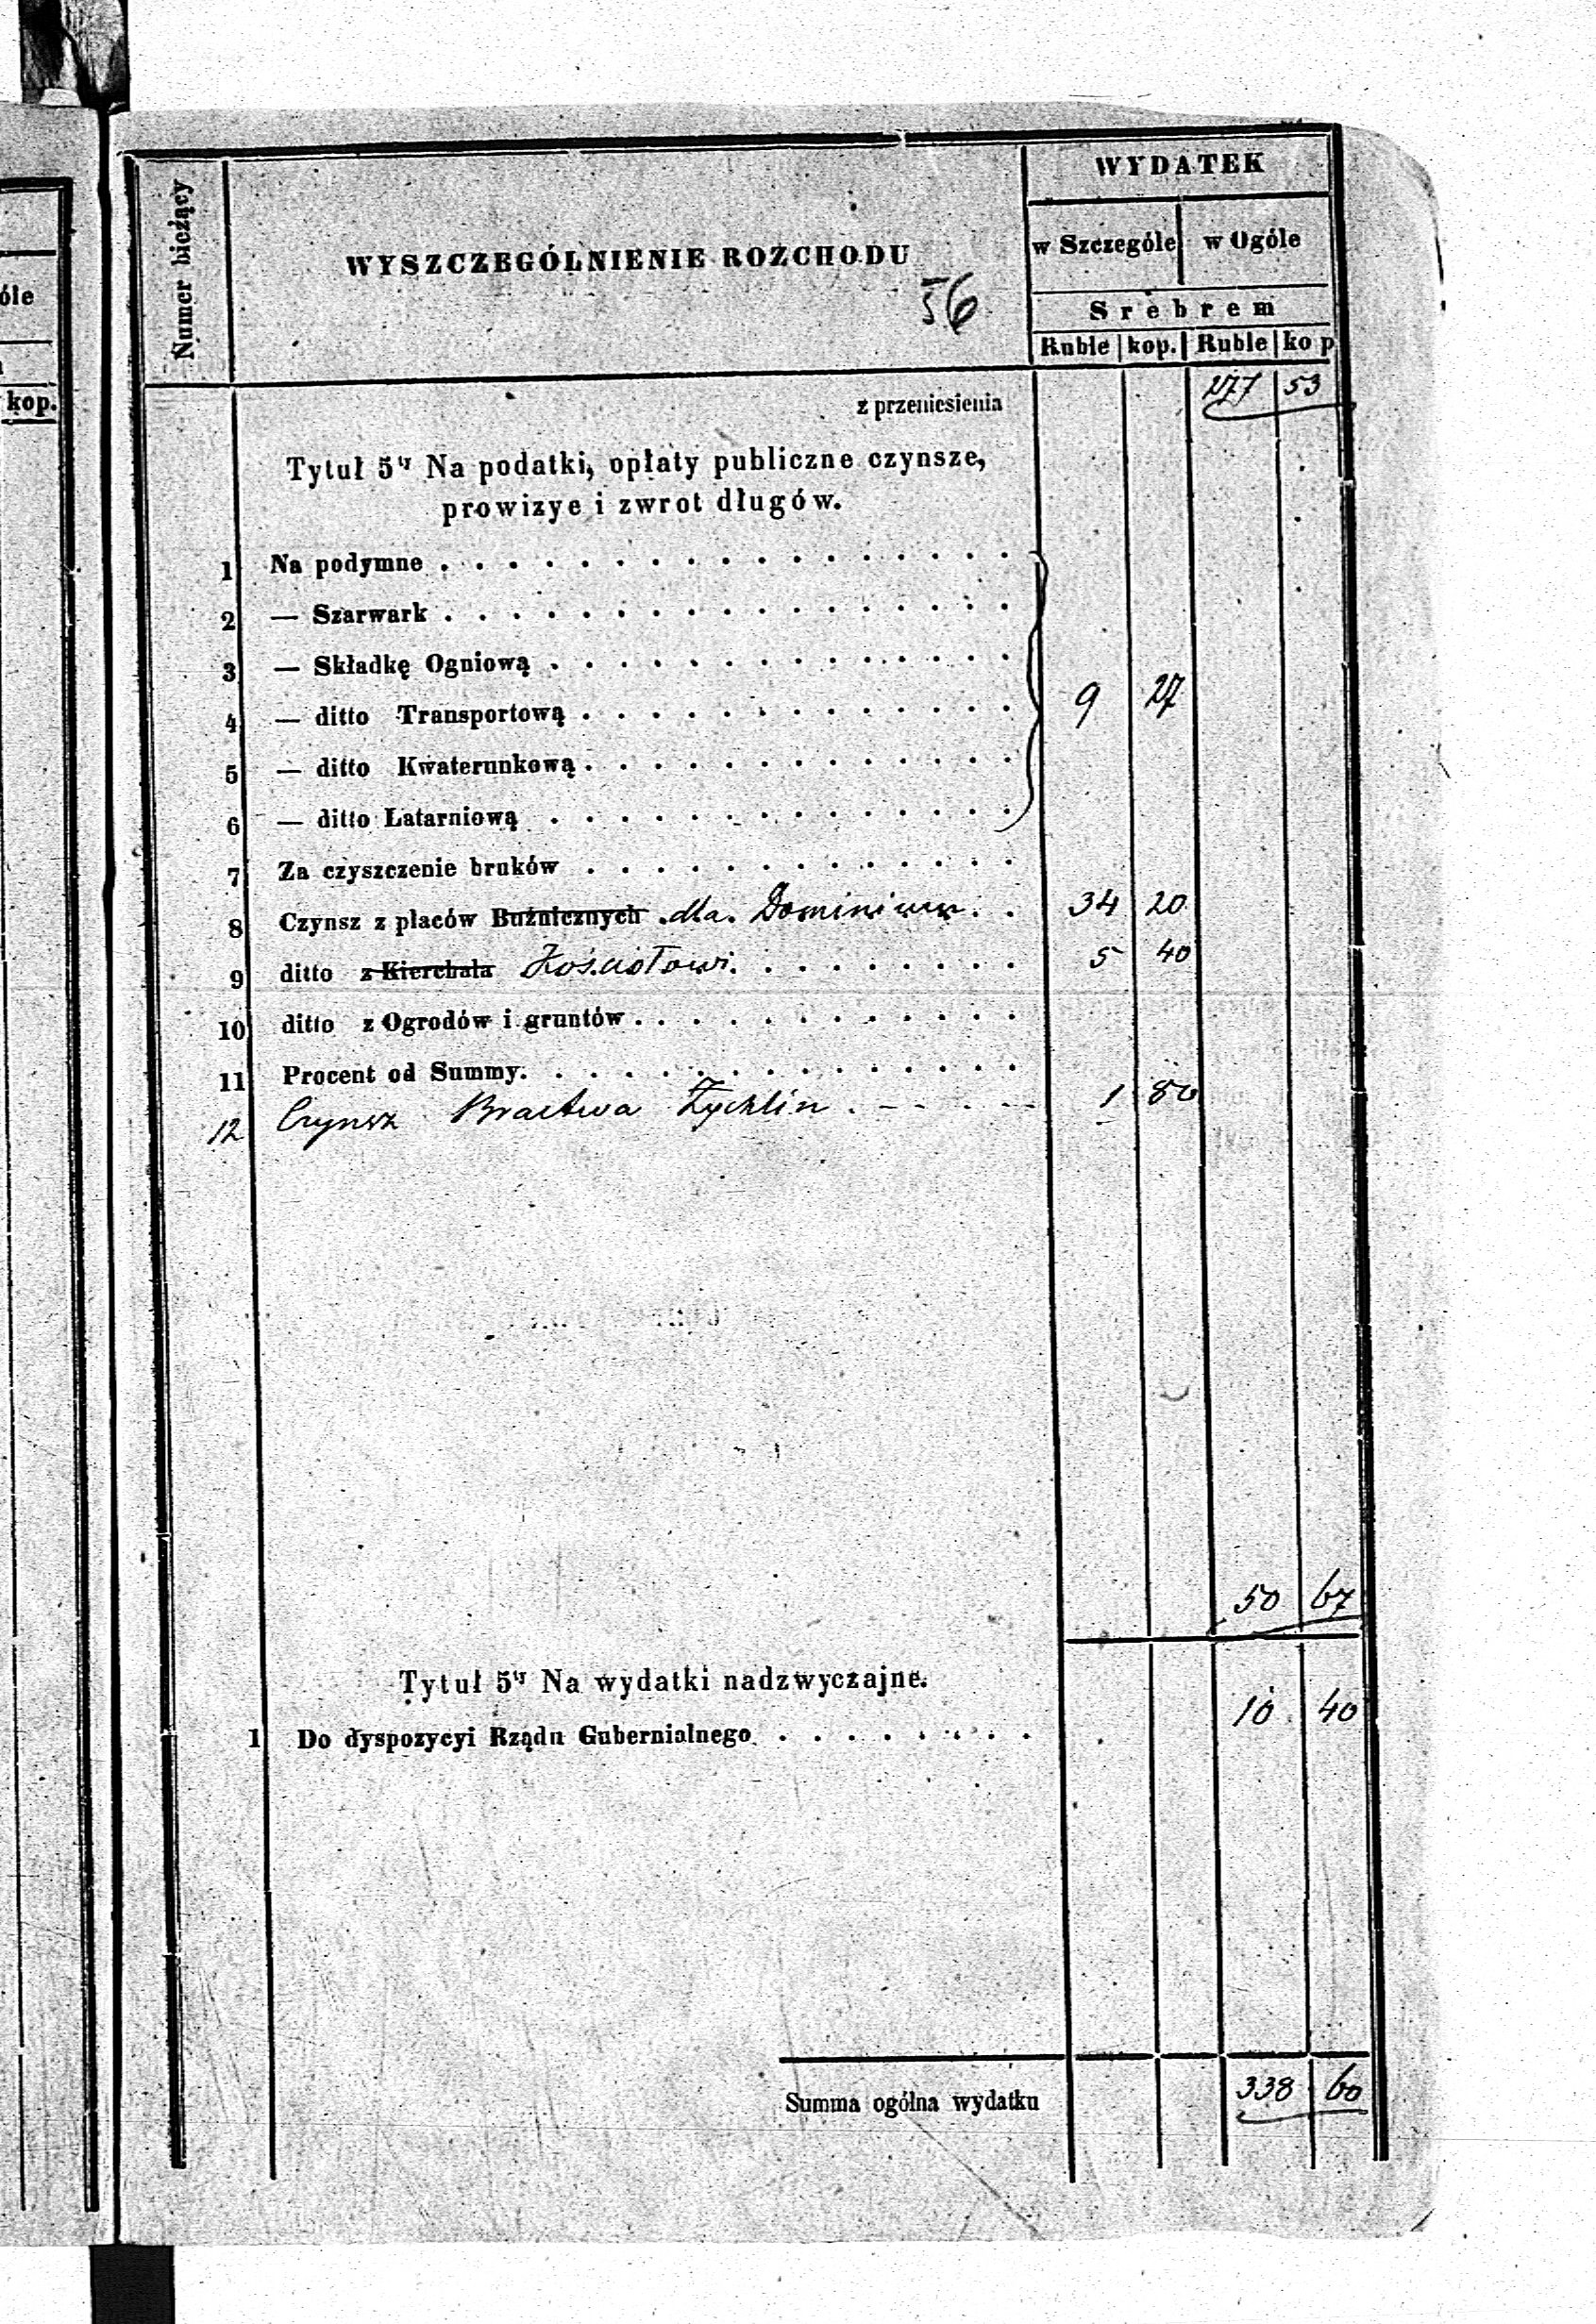 óle
kop.
Numer bieżący
WYSZCZEGÓLNIENIE ROZCHODU
56
WYDATEK
w Szczególe w Ogóle
Srebrem
Ruble kop. Ruble kop
z przeniesienia 277 53
Tytuł 5ty Na podatki, opłaty publiczne czynsze,
prowizye i zwrot długów.
1 Na podymne
2 — Szarwark
3 — Składkę Ogniową
4 — ditto Transportową 9 27
5 — ditto Kwaterunkową
6 — ditto Latarniową
7 Za czyszczenie bruków
8 Czynsz z placów Buźnicznych dla Dominium 34 20
9 ditto z Kierchala Kościołowi 5 40
10 ditto z Ogrodów i gruntów
11 Procent od Summy
12 Czynsz Bractwa Żychlin 1 80
50 67
Tytuł 5ty Na wydatki nadzwyczajne.
10 40
1 Do dyspozycyi Rządu Gubernialnego
Summa ogólna wydatku 338 60